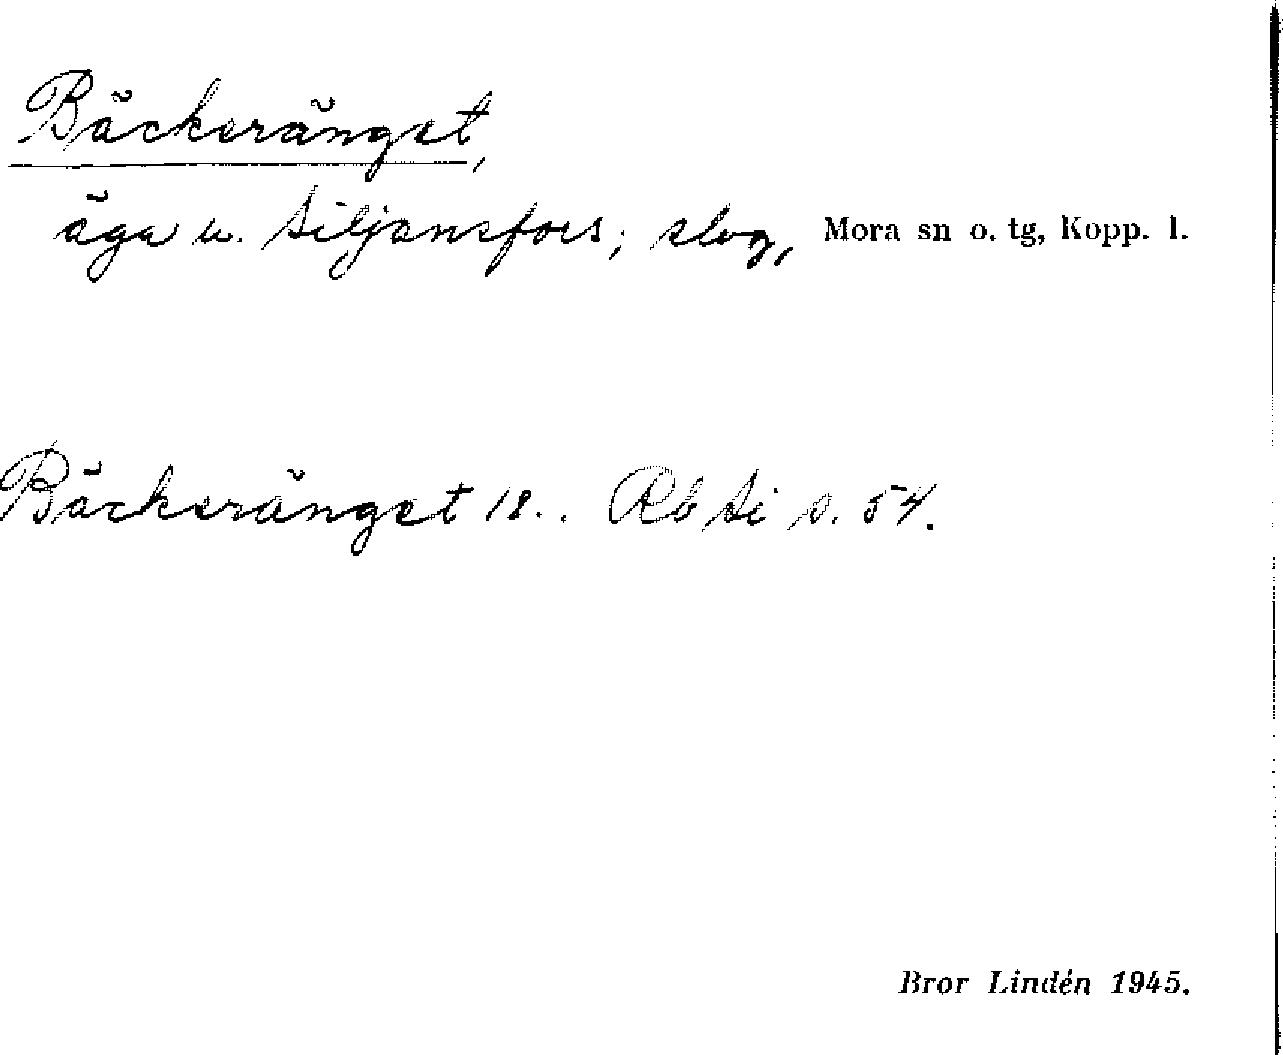 Bäckeränget,
äga u. Siljansfors; slog, Mora sn o. tg, Kopp. l.
Bäckeränget 18.. Rb Si s. 54.
Bror Lindén 1945.